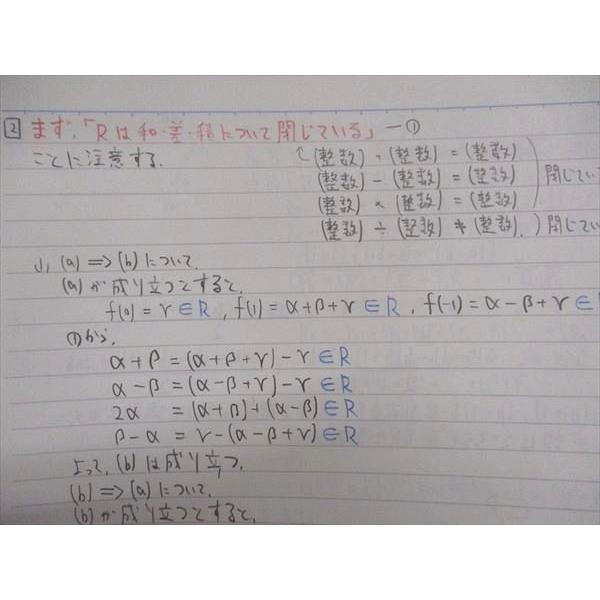 2 まず、「Rは和・差・積について閉じている」―①
ことに注意する.
(整数) + (整数) = (整数)
(整数) - (整数) = (整数)
(整数) × (整数) = (整数)
閉じてい
(整数) ÷ (整数) ≠ (整数).
閉じてい
1, (a) ⟹ (b) について.
(a) が成り立つとすると、
f(0) = γ ∈ R, f(1) = α + β + γ ∈ R, f(-1) = α - β + γ ∈
①から、
α + β = (α + β + γ) - γ ∈ R
α - β = (α - β + γ) - γ ∈ R
2α = (α + β) + (α - β) ∈ R
β - α = γ - (α - β + γ) ∈ R
よって、(b) は成り立つ.
(b) ⟹ (a) について.
(b) が成り立つとすると、